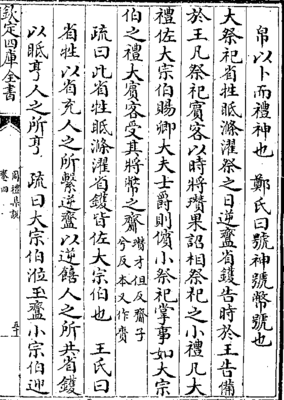 帛以卜而禮神也　鄭氏曰號神號幣號也
大祭祀省牲眡滌濯祭之日逆齍省鑊告時於王告備
於王凡祭祀賓客以時將瓚果詔相祭祀之小禮凡大
禮佐大宗伯賜卿大夫士爵則儐小祭祀掌事如大宗
伯之禮大賓客受其將幣之齎瓚才但反齎子兮反本又作賫
疏曰此省牲眡滌濯省鑊皆佐大宗伯也　王氏曰
省牲以省充人之所繫逆齍以逆饎人之所共省鑊
以眡亨人之所亨　疏曰大宗伯涖玉齍小宗伯迎
欽定四庫全書
周禮集說
卷四